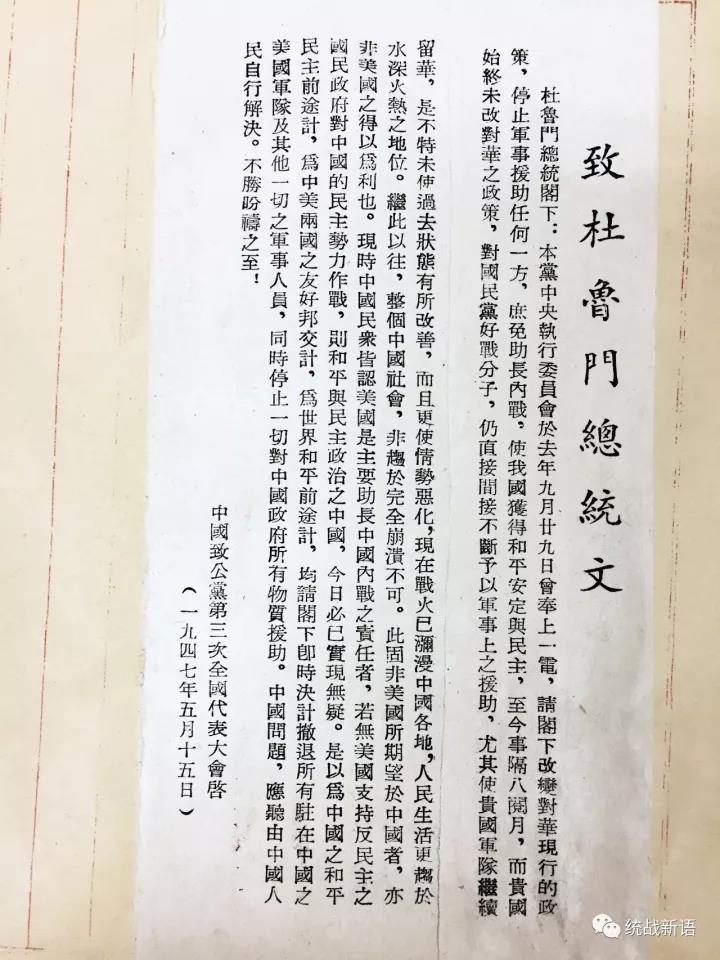 致杜魯門總統文
杜魯門總統閣下：本黨中央執行委員會於去年九月廿九日曾奉上一電，請閣下改變對華現行的政
策，停止軍事援助任何一方，庶免助長內戰，使我國獲得和平安定與民主，至今事隔八閱月，而貴國
始終未改對華之政策，對國民黨好戰分子，仍直接間接不斷予以軍事上之援助，尤其使貴國軍隊繼續
留華，是不特未使過去狀態有所改善，而且更使情勢惡化，現在戰火已瀰漫中國各地，人民生活更趨於
水深火熱之地位。繼此以往，整個中國社會，非趨於完全崩潰不可。此固非美國所期望於中國者，亦
非美國之得以爲利也。現時中國民衆皆認美國是主要助長中國內戰之責任者，若無美國支持反民主之
國民政府對中國的民主勢力作戰，則和平與民主政治之中國，今日必已實現無疑。是以爲中國之和平
民主前途計，爲中美兩國之友好邦交計，爲世界和平前途計，均請閣下卽時決計撤退所有駐在中國之
美國軍隊及其他一切之軍事人員，同時停止一切對中國政府所有物質援助。中國問題，應聽由中國人
民自行解決。不勝盼禱之至！
中國致公黨第三次全國代表大會啓
（一九四七年五月十五日）
统战新语